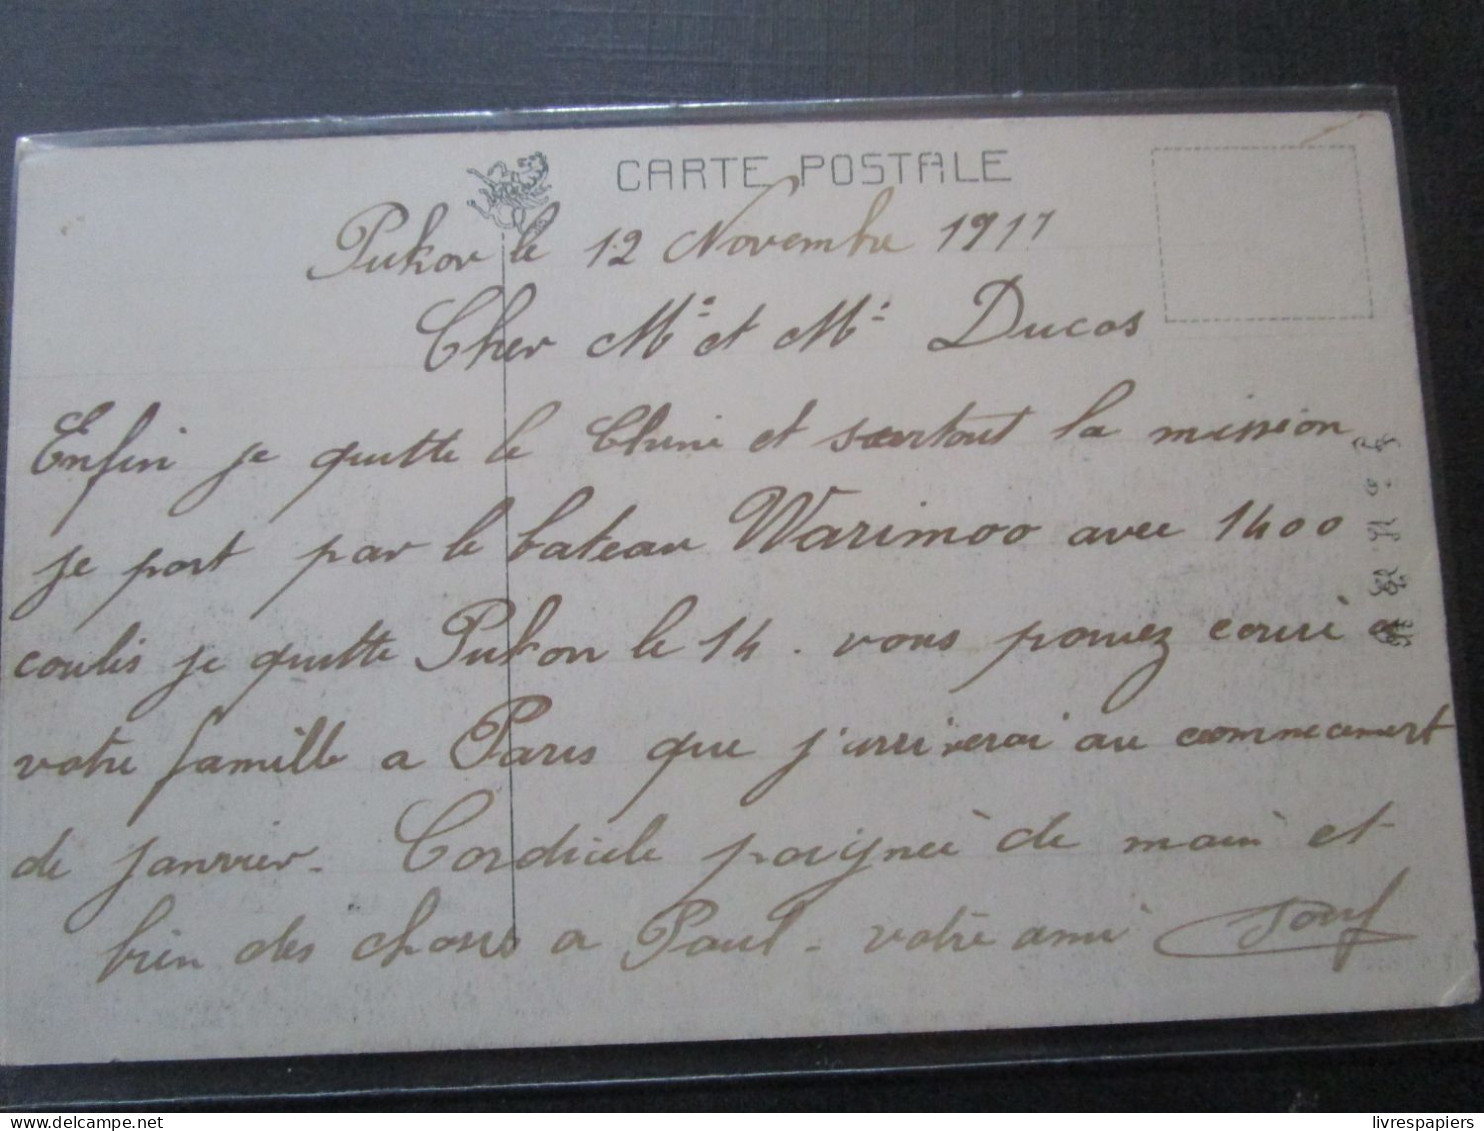 CARTE POSTALE
Pukow le 12 Novembre 1917
Cher Mr et Me Ducos
Enfin je quitte le Chine et surtout la mission
je part par le bateau Warimoo avec 1400
coulis je quitte Pukow le 14. vous pouvez ecrire a
votre famille a Paris que j'arriverai au commecement
de janvier. Cordiale poignée de main et
bien des choses a Paul. votre ami
livrespapiers